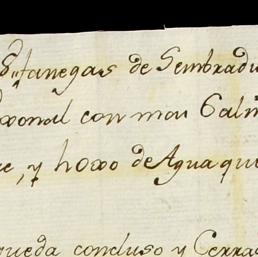 fanegas de Sembradu
con mas 6 alm
e, y hoxo de Agua que
queda concluso y Cerra